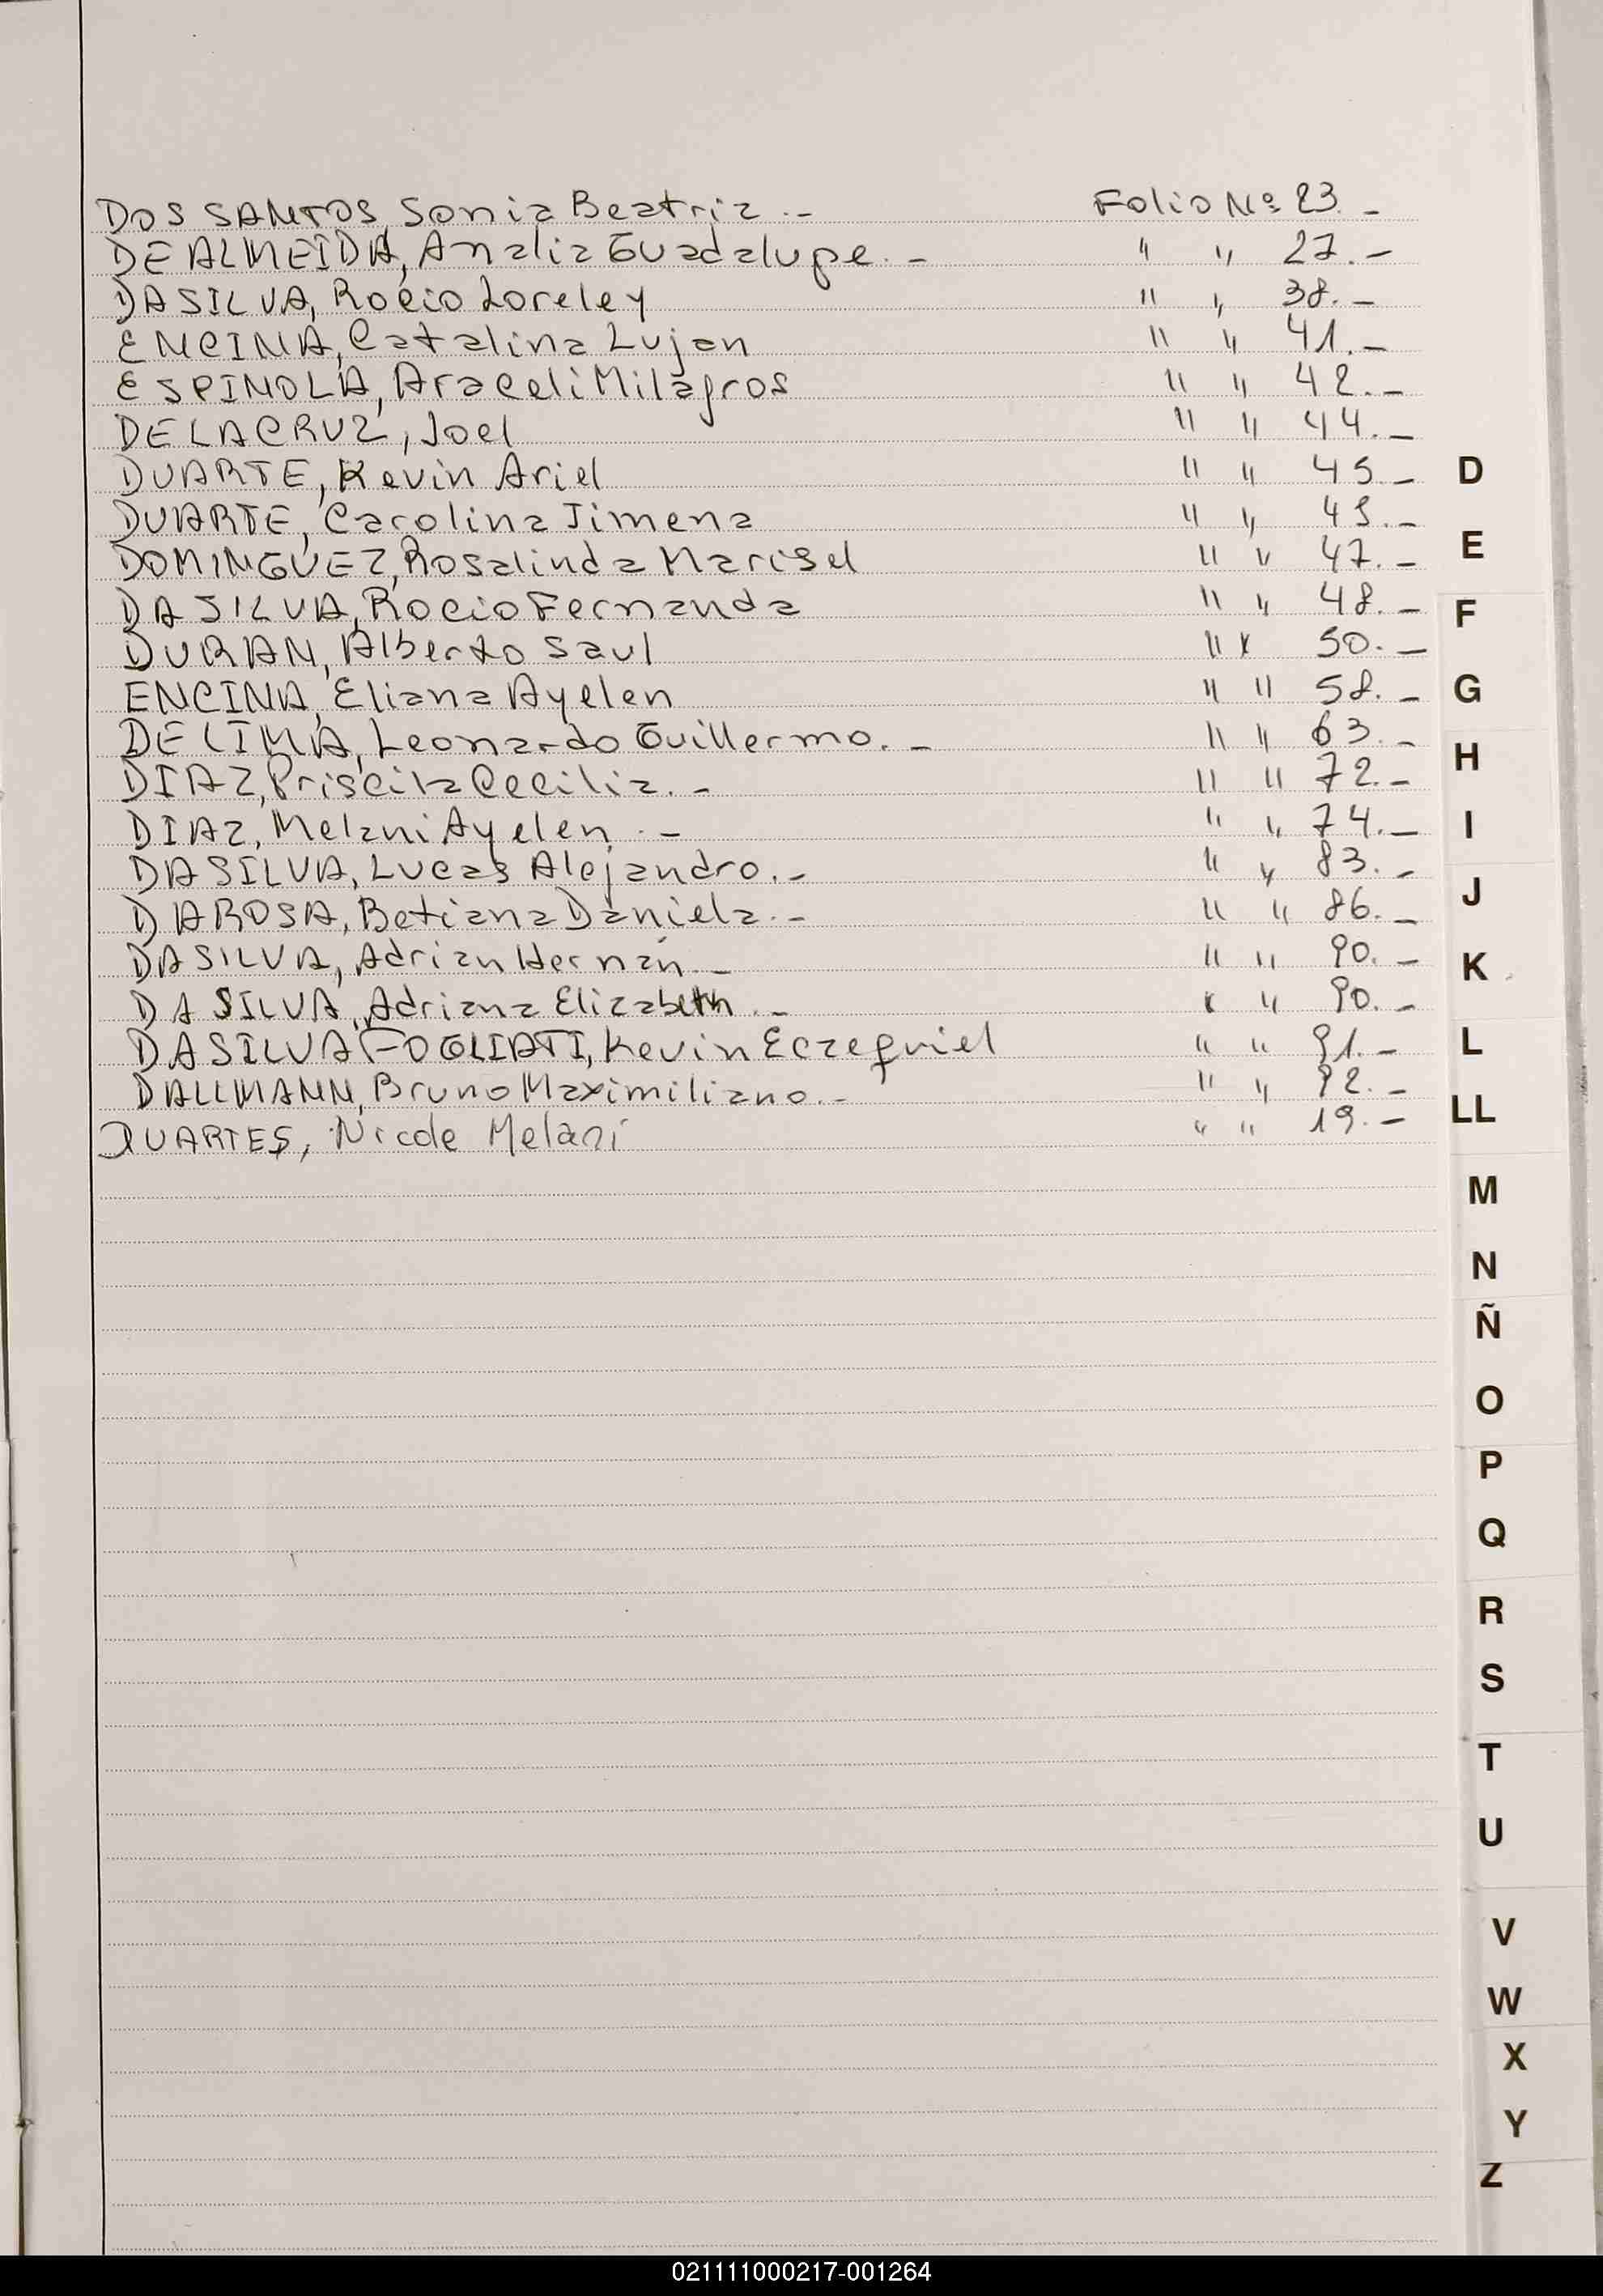 DOS SANTOS, Sonia Beatriz .- Folio Nº 23.-
DE ALMEIDA, Analia Guadalupe.- " " 27.-
DA SILVA, Rocio Loreley " " 38.-
ENCINA, Catalina Lujan " " 41.-
ESPINOLA, Araceli Milagros " " 42.-
DE LA CRUZ, Joel " " 44.-
DUARTE, Kevin Ariel " " 45.-
DUARTE, Carolina Jimena " " 45.-
DOMINGUEZ, Rosalinda Marisel " " 47.-
DA SILVA, Rocio Fernanda " " 48.-
DURAN, Alberto Saul " " 50.-
ENCINA, Eliana Ayelen " " 58.-
DE LIMA, Leonardo Guillermo.- " " 63.-
DIAZ, Priscila Cecilia.- " " 72.-
DIAZ, Melani Ayelen.- " " 74.-
DA SILVA, Lucas Alejandro.- " " 83.-
DA ROSA, Betiana Daniela.- " " 86.-
DA SILVA, Adrian Hernán.- " " 90.-
DA SILVA, Adriana Elizabeth.- " " 90.-
DA SILVA FOGLIATI, Kevin Eczequiel " " 91.-
DALLMANN, Bruno Maximiliano.- " " 92.-
DUARTES, Nicole Melani " " 19.-
D
E
F
G
H
I
J
K
L
LL
M
N
Ñ
O
P
Q
R
S
T
U
V
W
X
Y
Z
021111000217-001264